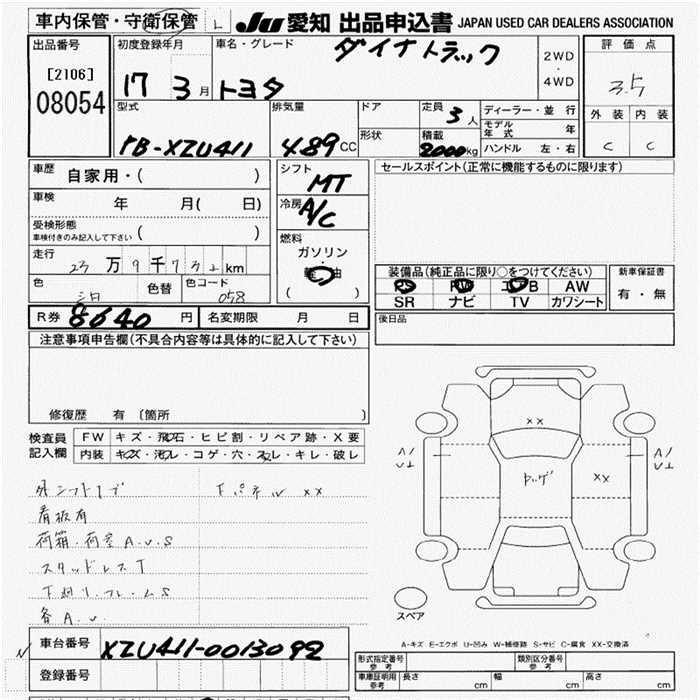 車内保管・守衛保管 L JU 愛知 出品申込書 JAPAN USED CAR DEALERS ASSOCIATION
出品番号 初度登録年月 車名・グレード ダイナトラック 2WD・4WD 評価点
[2106] 17 3月 トヨタ 3.5
08054
型式 排気量 ドア 定員 3人 ディーラー・並行 外装 内装
形状 積載 モデル年式 年
PB-XZU411 4.89 CC 2000kg ハンドル 左・右 C C
車歴 自家用・( ) シフト MT セールスポイント(正常に機能するものに限ります)
車検 年 月( 日) 冷房 A/C
受検形態 ( )
車検付きのみ記入して下さい
燃料
走行 23万9千732km ガソリン・軽油
( )
装備品(純正品に限り○をつけてください) 新車保証書
色 シロ 色替 色コード 058 PS PW エアB AW 有・無
SR ナビ TV カワシート
R券 8640円 名変期限 月 日 後日品
注意事項申告欄(不具合内容等は具体的に記入して下さい)
修復歴 有 [箇所 ]
検査員記入欄 FW キズ・飛石・ヒビ割・リペア跡・X要
内装 キズ・汚レ・コゲ・穴・スレ・キレ・破レ
外シフトノブ Fパネル XX
看板有
荷箱・荷室A.U.S
スタッドレスT
下廻リ.フレームS
各A.U.
XX
XX
A1
U1
A1
U1
スペア
A-キズ E-エクボ U-凹み W-補修跡 S-サビ C-腐食 XX-交換済
N 車台番号 XZU411-0013092
登録番号
形式指定番号 参考 類別区分番号 参考
車庫証明用 参考 長さ cm 幅 cm 高さ cm